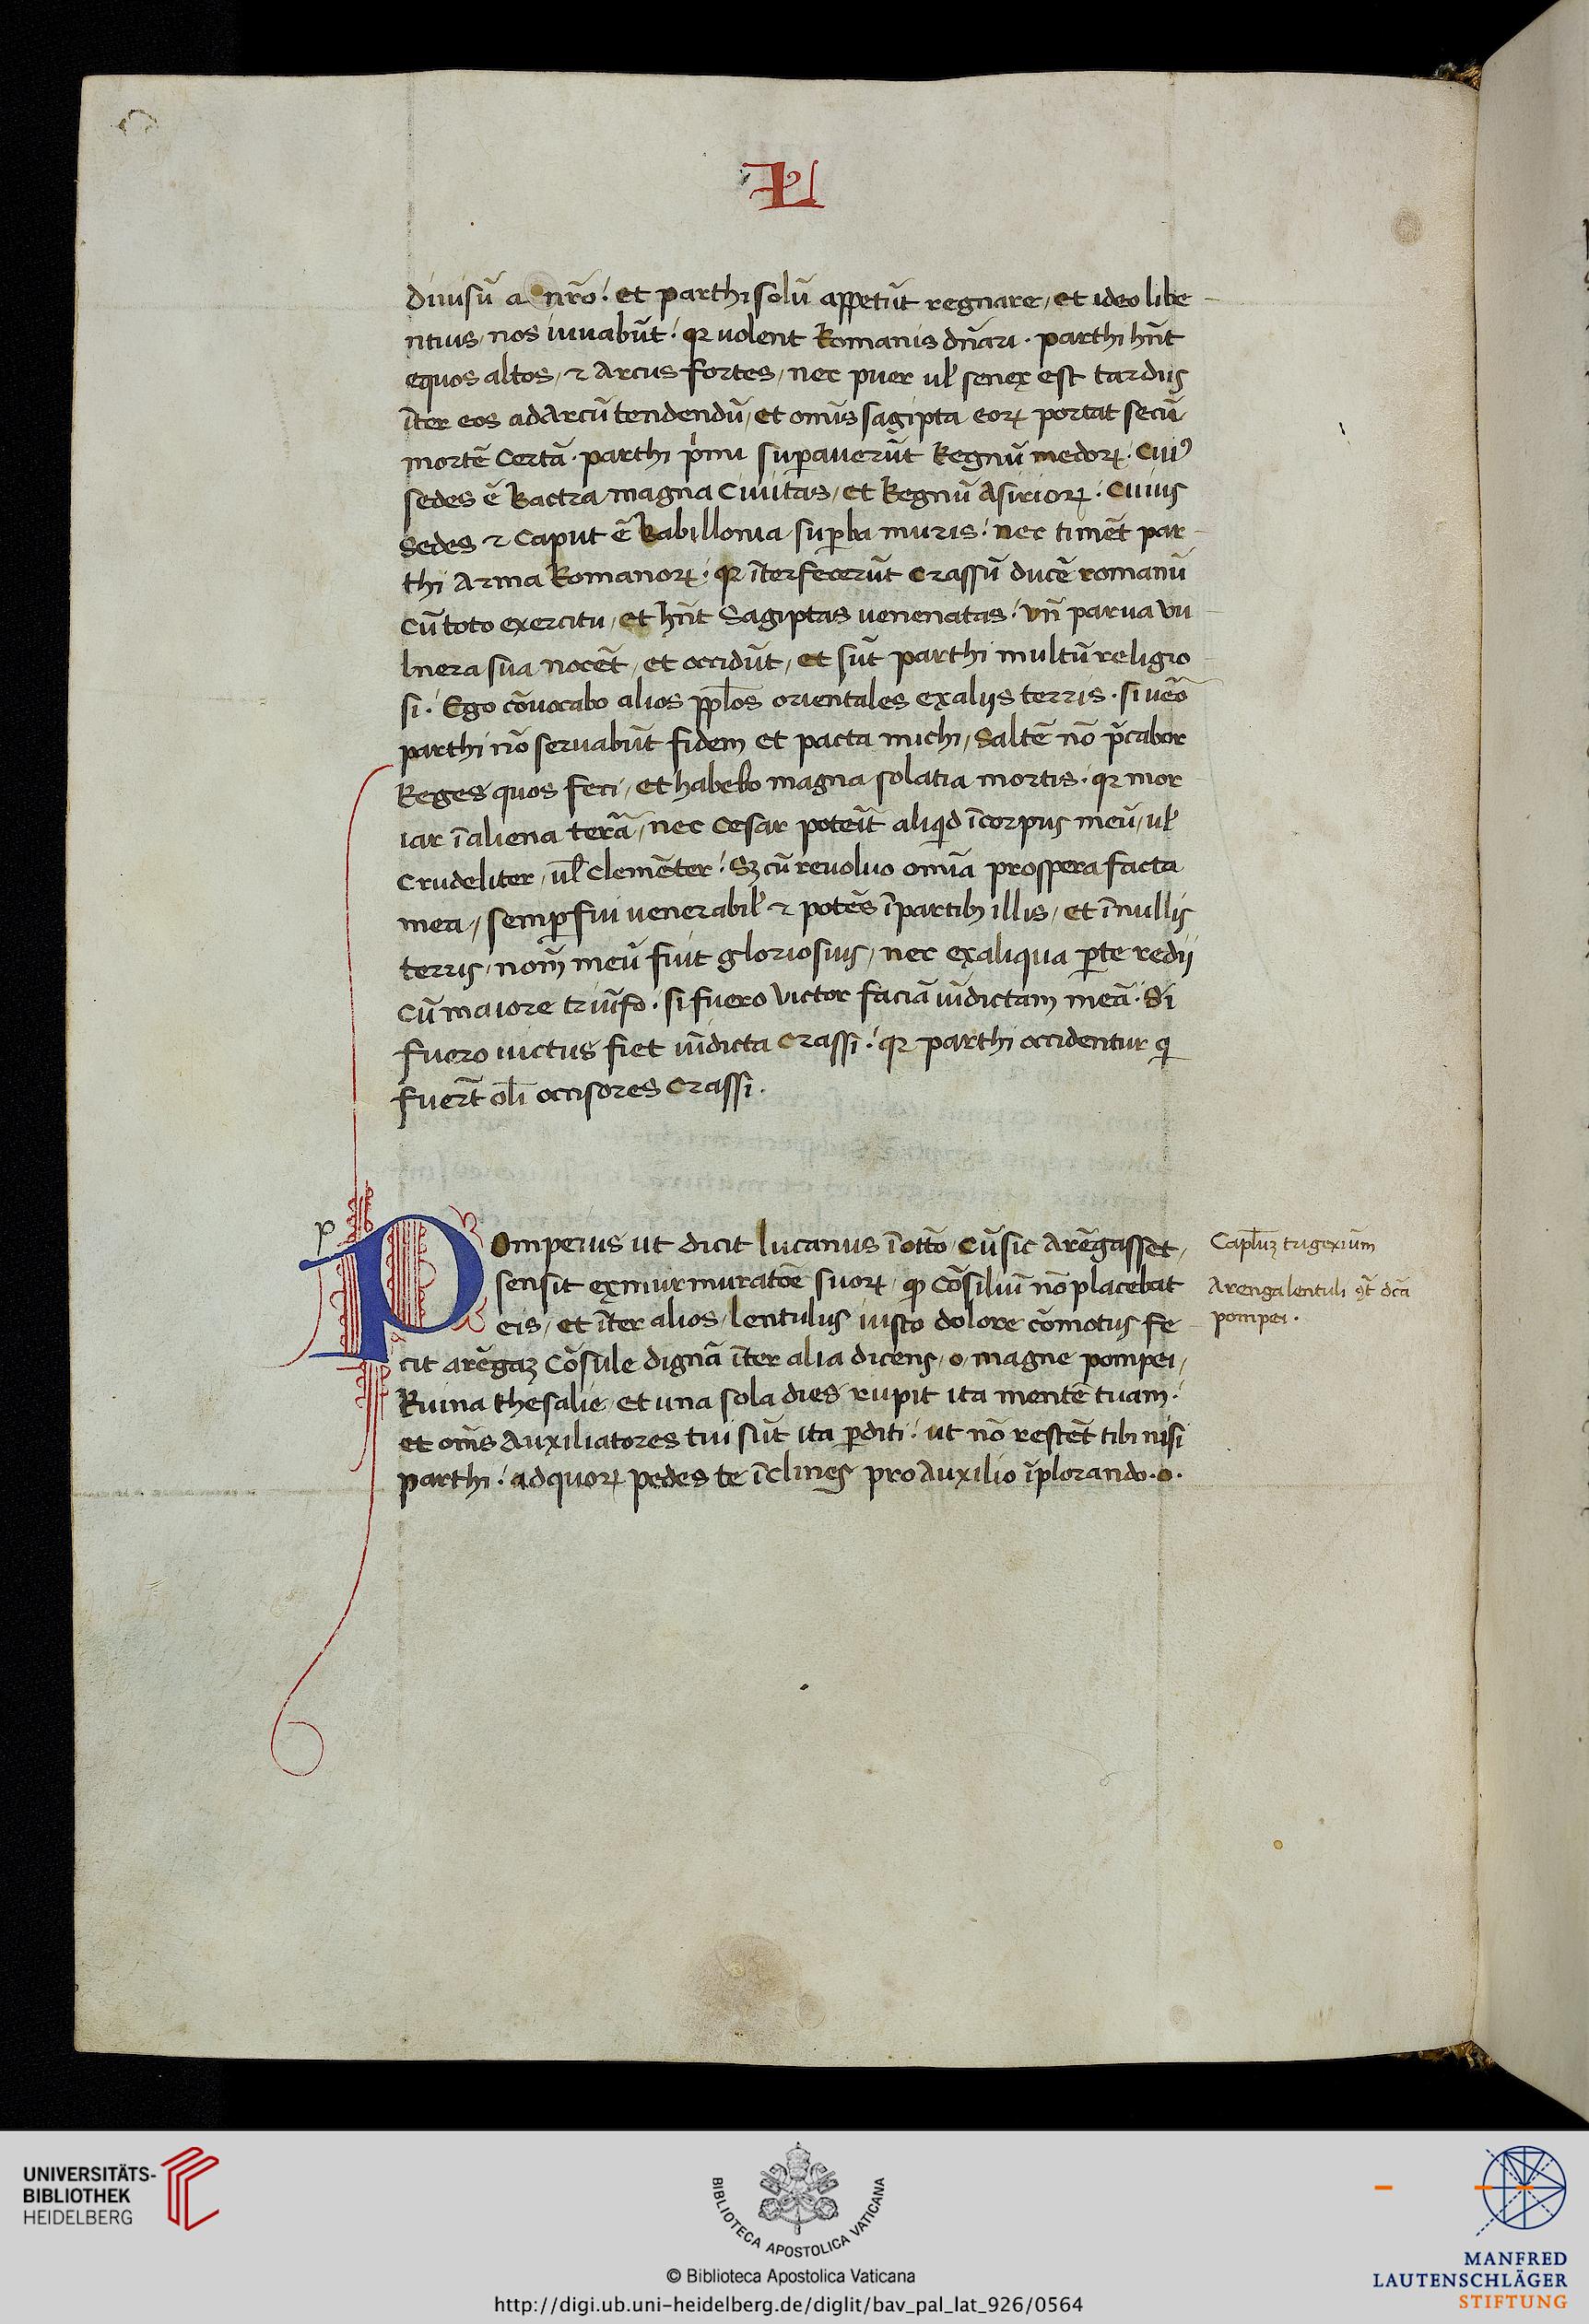 diuisũ a nr̃o! et parthi solũ appetũt regnare, et ideo libe-
ntius, nos iuuabũt! qꝛ uolent Romanis dñari. parthi hñt
equos altos, ⁊ Arcus fortes, nec puer ul̃ senex est tardus
ĩter eos ad Arcũ tendendũ, et omĩs sagipta eoꝝ portat secũ
mortẽ Certã. parthi pͥmi suꝑauerũt Regnũ medoꝝ. Cuiꝰ
sedes ẽ Bactra magna Ciuitas, et Regnũ Asirioꝝ. Cuius
sedes ⁊ Caput ẽ Babillonia suꝑba muris! nec timẽt par-
thi Arma Romanoꝝ. qꝛ ĩterfecerũt Crassũ ducẽ romanũ
Cũ toto exercitu, et hñt Sagiptas uenenatas! vñ parua vu-
lnera sua nocẽt, et occidũt, et sũt parthi multũ religio-
si. Ego cõuocabo alios ppl̃os orientales ex alijs terris. si uẽo
parthi nõ seruabũt fidem et pacta michi, Saltẽ nõ p̃cabor
Reges quos feci, et habebo magna solatia mortis. qꝛ mor-
iar ĩ aliena terã, nec Cesar potеĩt aliqͥd ĩ corpus meũ, ul̃
Crudeliter, ul̃ Clemẽter! Sꝫ cũ reuoluo omĩa prospera facta
mea, semꝑ fui uenerabil̃ ⁊ potẽs ĩ partibꝫ illis, et ĩ nullis
terris, nom̃ meũ fuit gloriosius, nec ex aliqua ꝑte redij
Cũ maiore triũfo. si fuero Victor faciã uĩdictam meã. Si
fuero uictus fiet uĩdicta Crassi! qꝛ parthi occidentur qͥ
fuer̃t oli occisores Crassi.
p
Pompeius ut dicit lucanus ĩ octõ, Cũ sic Arẽgasset,
sensit ex murmuratõe suoꝝ, ꝙ Cõsiliũ nõ placebat
eis, et ĩter alios, lentulus iusto dolore cõmotus fe-
cit arẽgaꝫ Cõsule dignã ĩter alia dicens, o, magne pompei,
Ruina thesalie, et una sola dies rupit ita mentẽ tuam.
et om̃s Auxiliatores tui sũt ita ꝑditi! ut nõ restẽt tibi nisi
parthi! ad quoꝝ pedes te ĩclines pro Auxilio ĩplorando. o.
Capl̃uꝫ trigexiũm
Arenga lentuli 9̃t dcã
pompei.
UNIVERSITÄTS-
BIBLIOTHEK
HEIDELBERG
BIBLIOTECA APOSTOLICA VATICANA
© Biblioteca Apostolica Vaticana
http://digi.ub.uni-heidelberg.de/diglit/bav_pal_lat_926/0564
MANFRED
LAUTENSCHLÄGER
STIFTUNG